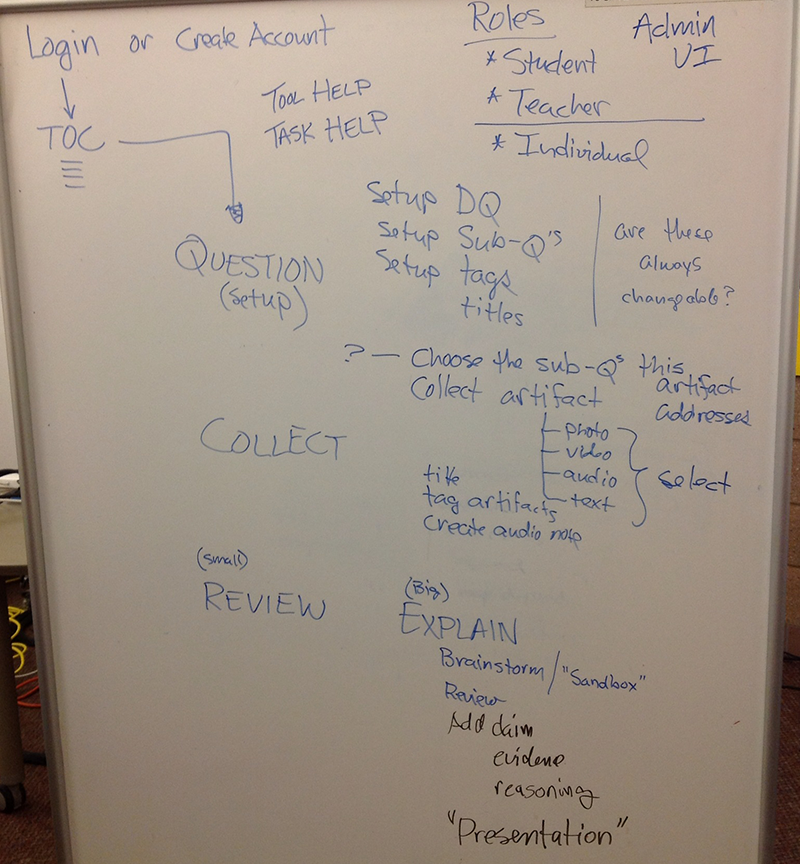 Login or Create Account
TOC
Tool HELP
TASK HELP
Roles
* Student
* Teacher
* Individual
Admin
UI
QUESTION
(setup)
Setup DQ
Setup Sub-Q's
Setup tags
titles
are these
always
changeable?
? — Choose the sub-Qs this
artifact
addresses
Collect artifact
COLLECT
photo
video
audio
text
select
title
tag artifacts
Create audio note
(small)
REVIEW
(Big)
EXPLAIN
Brainstorm/"Sandbox"
Review
Add claim
evidence
reasoning
"Presentation"